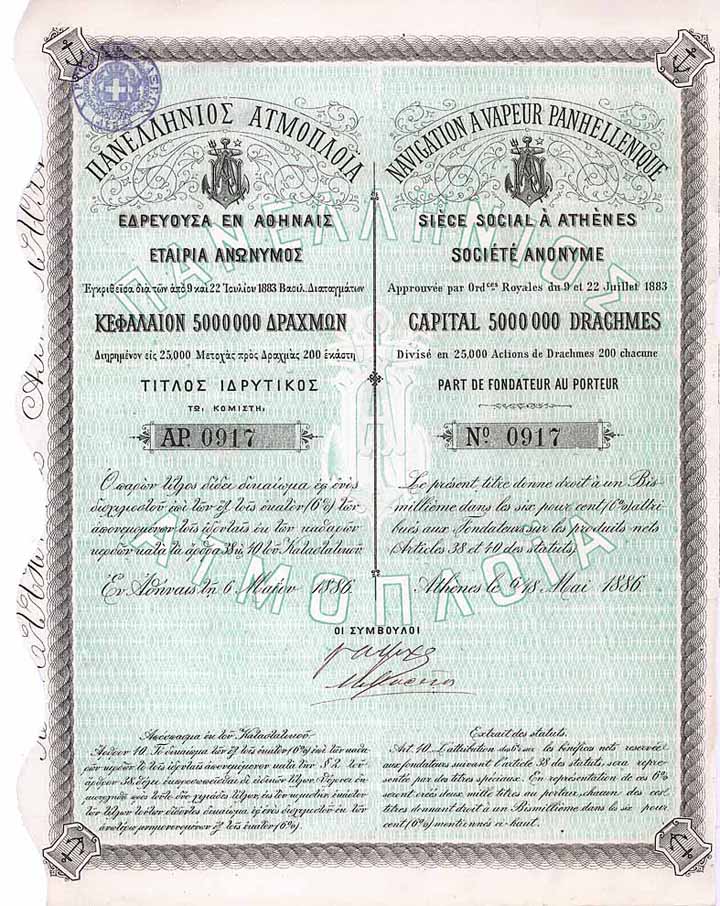 ΠΑΝΕΛΛΗΝΙΟΣ ΑΤΜΟΠΛΟΪΑ
ΕΔΡΕΥΟΥΣΑ ΕΝ ΑΘΗΝΑΙΣ
ΕΤΑΙΡΙΑ ΑΝΩΝΥΜΟΣ
Ἐγκριθεῖσα διὰ τῶν ἀπὸ 9 καὶ 22 Ἰουλίου 1883 Βασιλ. Διαταγμάτων
ΚΕΦΑΛΑΙΟΝ 5000000 ΔΡΑΧΜΩΝ
Διῃρημένον εἰς 25,000 Μετοχὰς πρὸς Δραχμὰς 200 ἑκάστη
ΤΙΤΛΟΣ ΙΔΡΥΤΙΚΟΣ
ΤΩι ΚΟΜΙΣΤΗι
ΑΡ. 0917
Ὁ παρὼν τίτλος δίδει δικαίωμα ἐφ' ἑνὸς
δισχιλιοστοῦ ἐπὶ τῶν ἓξ τοῖς ἑκατὸν (6%) τῶν
ἀπονεμομένων τοῖς ἱδρυταῖς ἐκ τῶν καθαρῶν
κερδῶν κατὰ τὰ ἄρθρα 38 κ. 40 τοῦ Καταστατικοῦ.
Ἐν Ἀθήναις τῇ 6 Μαΐου 1886.
NAVIGATION A VAPEUR PANHELLENIQUE
SIÈCE SOCIAL À ATHÈNES
SOCIÉTÉ ANONYME
Approuvée par Ordces Royales du 9 et 22 Juillet 1883
CAPITAL 5000000 DRACHMES
Divisé en 25,000 Actions de Drachmes 200 chacune
PART DE FONDATEUR AU PORTEUR
No 0917
Le présent titre donne droit à un Bis-
millième dans les six pour cent (6%) attri-
bués aux Fondateurs sur les produits nets
(Articles 38 et 40 des statuts)
Athènes le 6/18 Mai 1886.
ΠΑΝΕΛΛΗΝΙΟΣ
ΑΤΜΟΠΛΟΪΑ
ΟΙ ΣΥΜΒΟΥΛΟΙ
Ἀπόσπασμα ἐκ τοῦ Καταστατικοῦ.
Ἄρθρον 40. Τὸ δικαίωμα τῶν ἓξ τοῖς ἑκατὸν (6%) ἐπὶ τῶν καθα-
ρῶν κερδῶν τὸ τοῖς ἱδρυταῖς ἀπονεμόμενον κατὰ τὴν § 2 τοῦ
ἄρθρου 38
Extrait des statuts.
Art. 40. L'attribution des 6% sur les bénéfices nets reservée
aux fondateurs suivant l'article 38 des statuts, sera repre-
sentée par des titres spéciaux. En représentation de ces 6%
seront créés deux mille titres au porteur, chacun des ces
titres donnant droit à un Bismillième dans les six pour
cent (6%) mentionnés ci-haut.